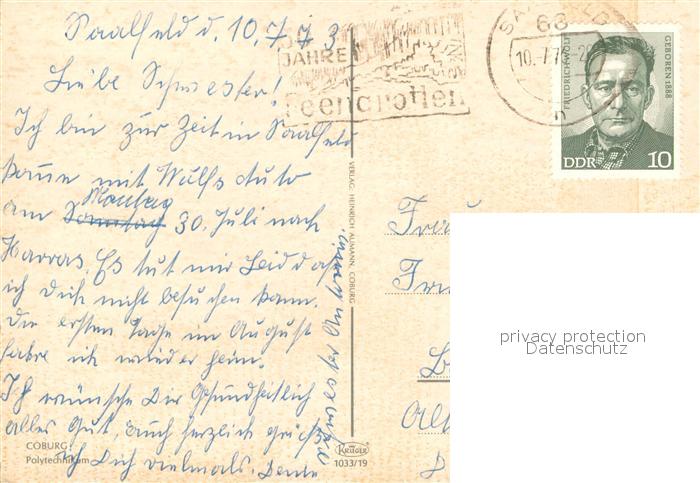 Saalfeld d. 10.7.73
Liebe Schwester!
Ich bin zur Zeit in Saalfeld
kome mit Wulfs Auto
am Sonntag Montag 30. Juli nach
Harras. Es tut mir Leid daß
ich Dich nicht besuchen kann.
Die ersten Tage im August
fahre ich wieder heim.
Ich wünsche Dir Gesundheitlich
alles Gut, auch herzlich grüßt
ich Dich vielmals. Deine
Schwester
JAHRE
Feengrotten
SAALFELD
68
10.7.73
n
FRIEDRICH WOLF
GEBOREN 1888
DDR 10
VERLAG: HEINRICH AUMANN, COBURG
Frau
privacy protection
Datenschutz
COBURG
Polytechnikum
KRÜGER
1033/19